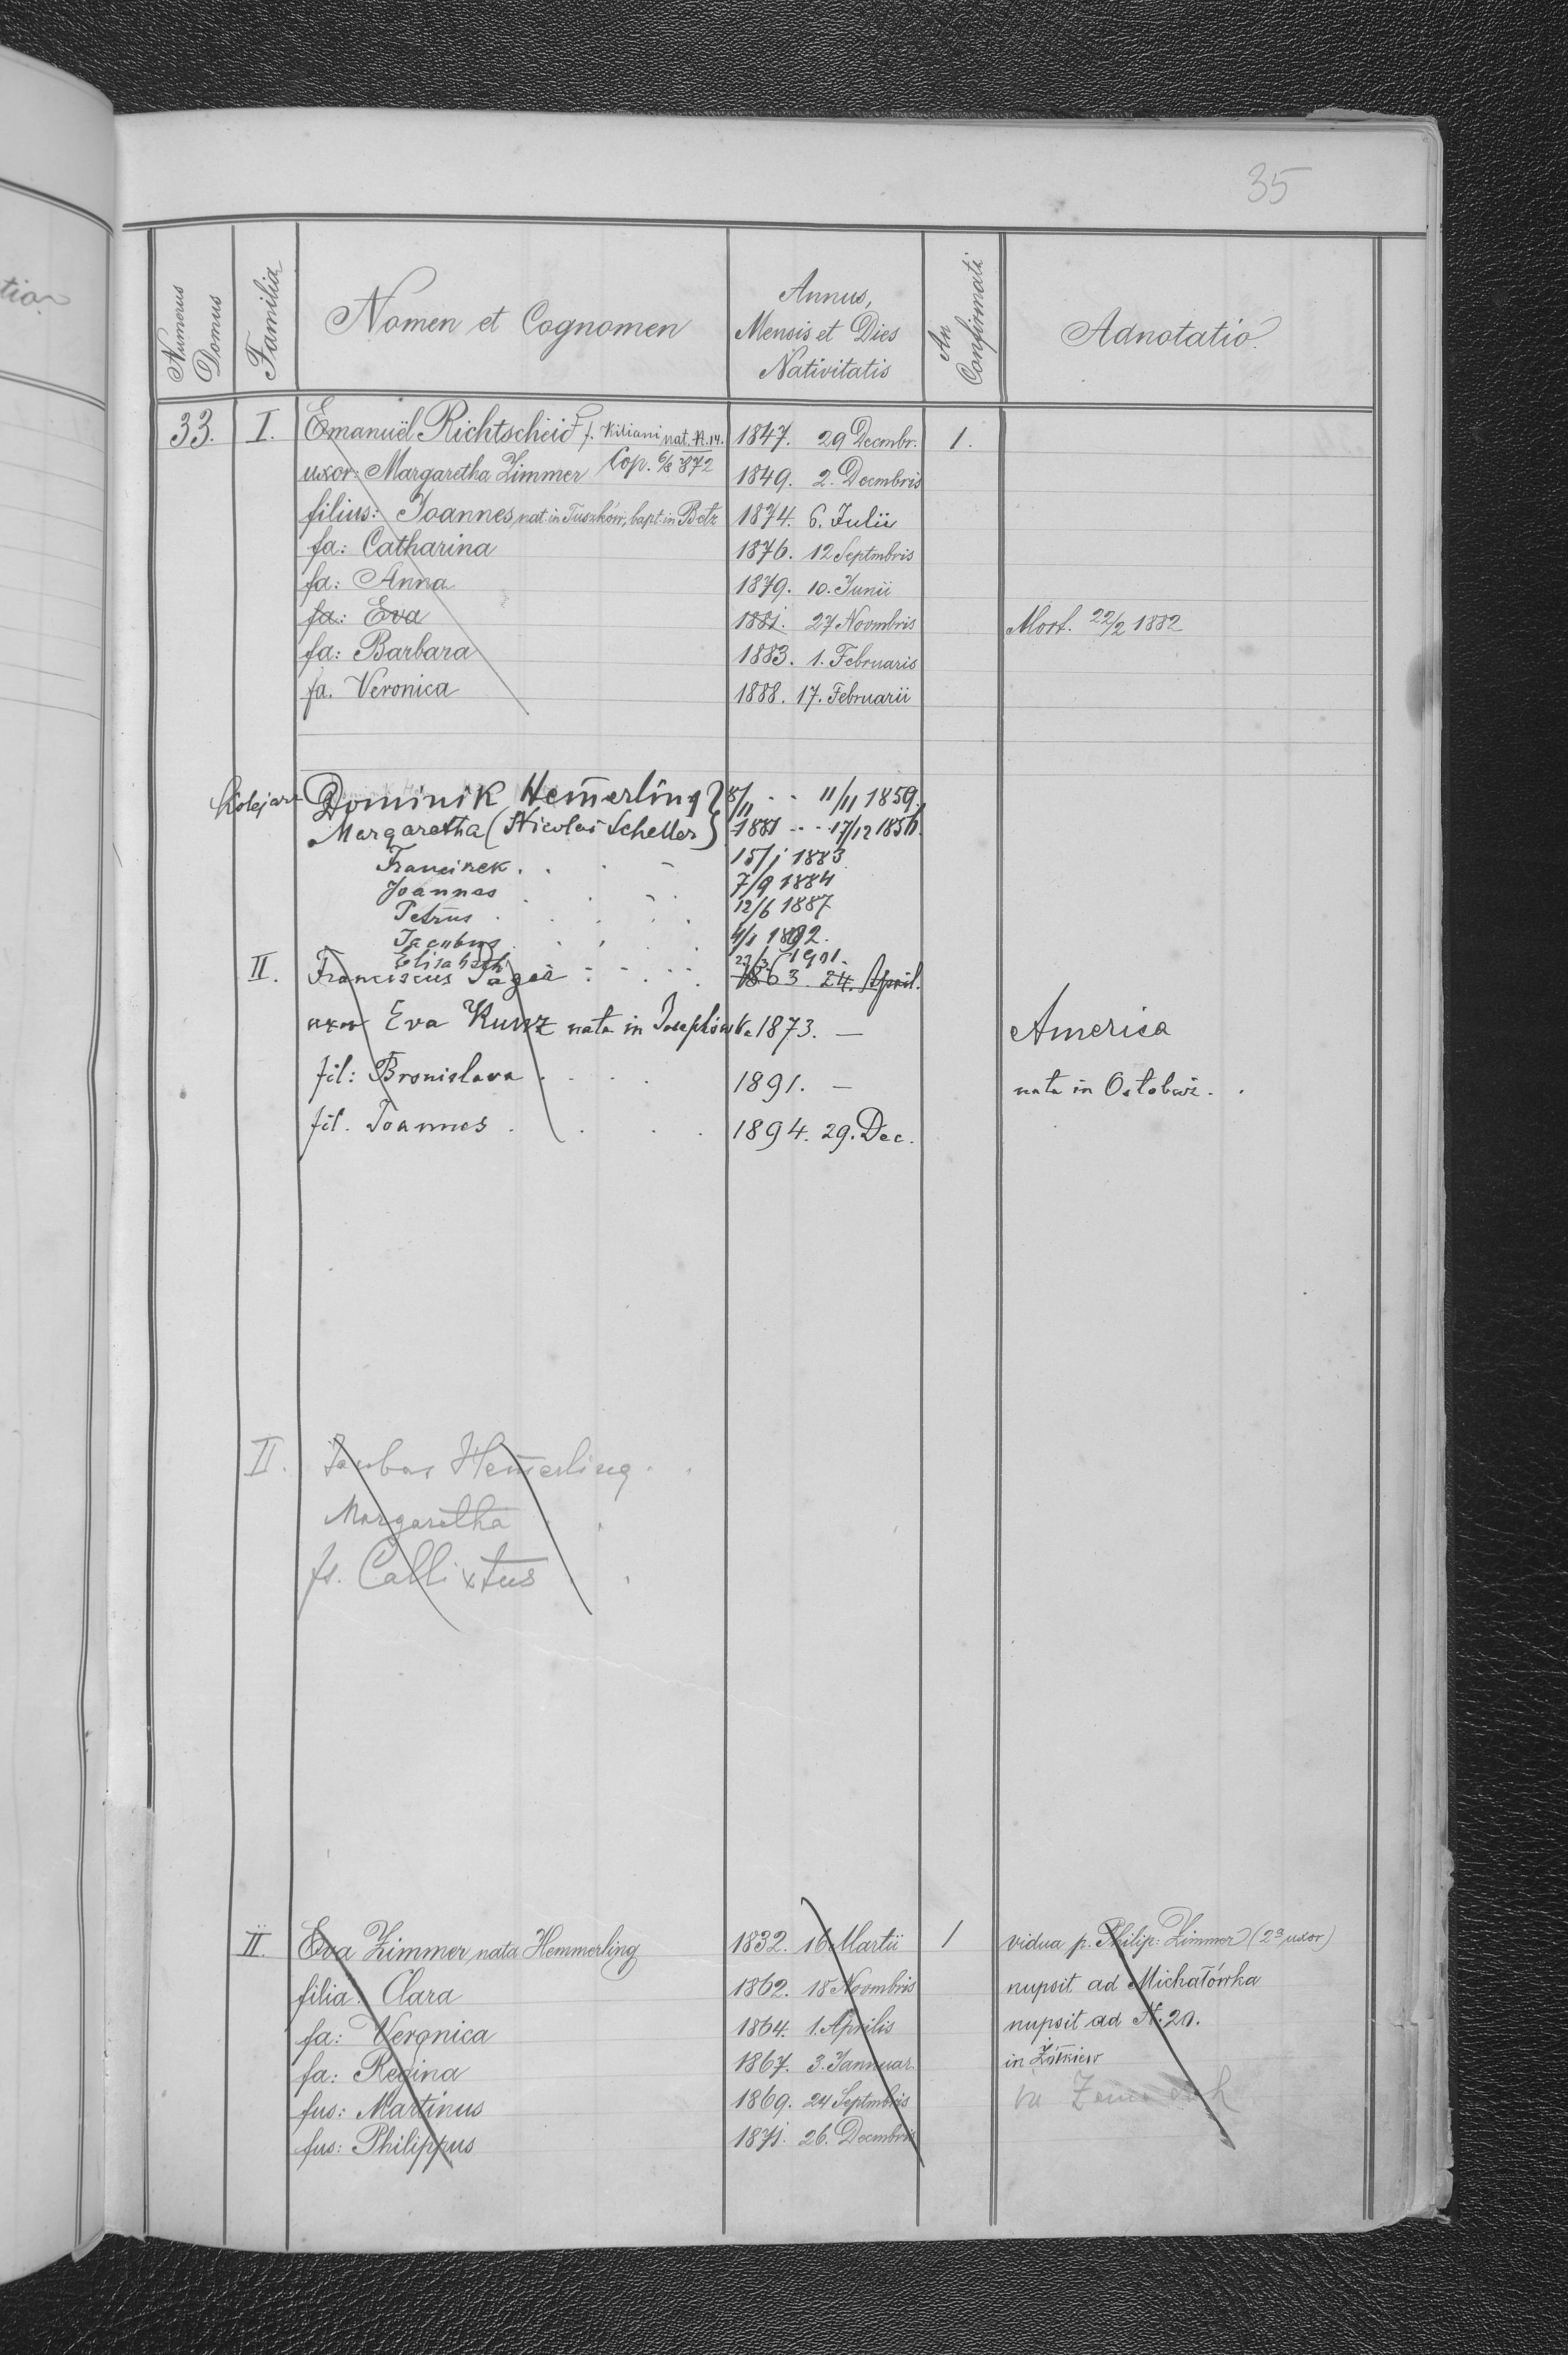 35
Numerus Domus | Familia | Nomen et Cognomen | Annus, Mensis et Dies Nativitatis | An Confirmati | Adnotatio
33. | I. | Emanuël Richtscheid f. Kiliani nat. N. 14. | 1847. 29 Decmbr. | 1.
uxor: Margaretha Zimmer Cop. 6/8 872 | 1849. 2. Decmbris
filius: Joannes, nat. in Tuszków, bapt. in Bełz | 1874. 6. Julii
fa: Catharina | 1876. 12 Septmbris
fa: Anna | 1879. 10. Junii
fa: Eva | 1881. 27 Novmbris | Mort. 22/2 1882
fa: Barbara | 1883. 1. Februaris
fa. Veronica | 1888. 17. Februarii
Kolejarz Dominik Hem̄erling | 8/11 .. 11/11 1859.
Margaretha (Nicolai Scheller) | 1881 ... 17/12 1856.
Francisek . . . | 15/1 1883.
Joannes | 7/9 1884
Petrus | 12/6 1887
Jacubus | 4/1 1892.
Elisabeth | 23/3 1901.
II. | Franciscus | 1863. 24. April.
uxor Eva Kunz nata in Josephówka | 1873. — | America
fil: Bronislava | 1891. — | nata in
fil. Joannes | 1894. 29. Dec.
II. | Jacobus Hem̄erling
Margaretha
fs. Callixtus
II. | Eva Zimmer nata Hemmerling | 1832. 16 Martii | 1 | vidua p. Philip: Zimmer (2ª uxor)
filia: Clara | 1862. 18 Novmbris | nupsit ad Michałówka
fa: Veronica | 1864. 1. Aprilis | nupsit ad N. 20.
fa: Regina | 1867. 3. Jannuar. | in Żółkiew
fus: Martinus | 1869. 24 Septmbris | in
fus: Philippus | 1871. 26. Decmbris